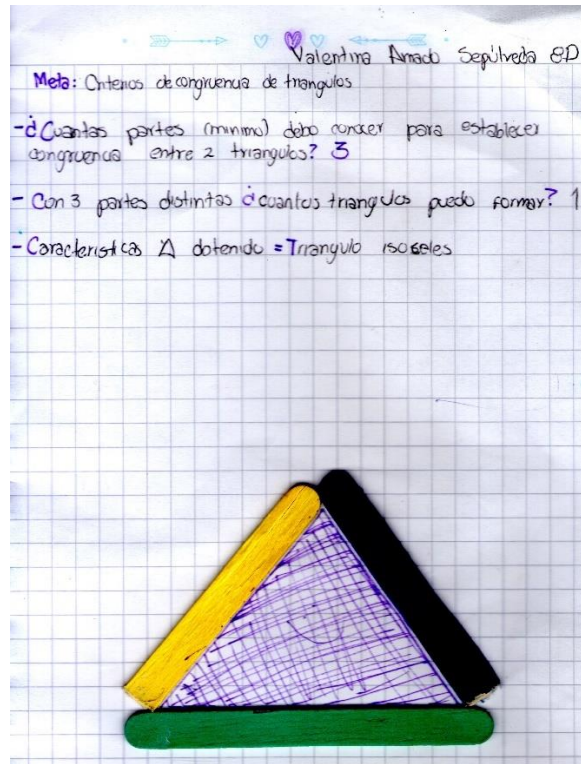 Valentina Amado Sepúlveda 8D
Meta: Criterios de congruencia de triangulos
-¿Cuantas partes (minimo) debo conocer para establecer
congruencia entre 2 triangulos? 3
- Con 3 partes distintas ¿cuantos triangulos puedo formar? 1
- Caracteristicas △ obtenido = Triangulo isoseles